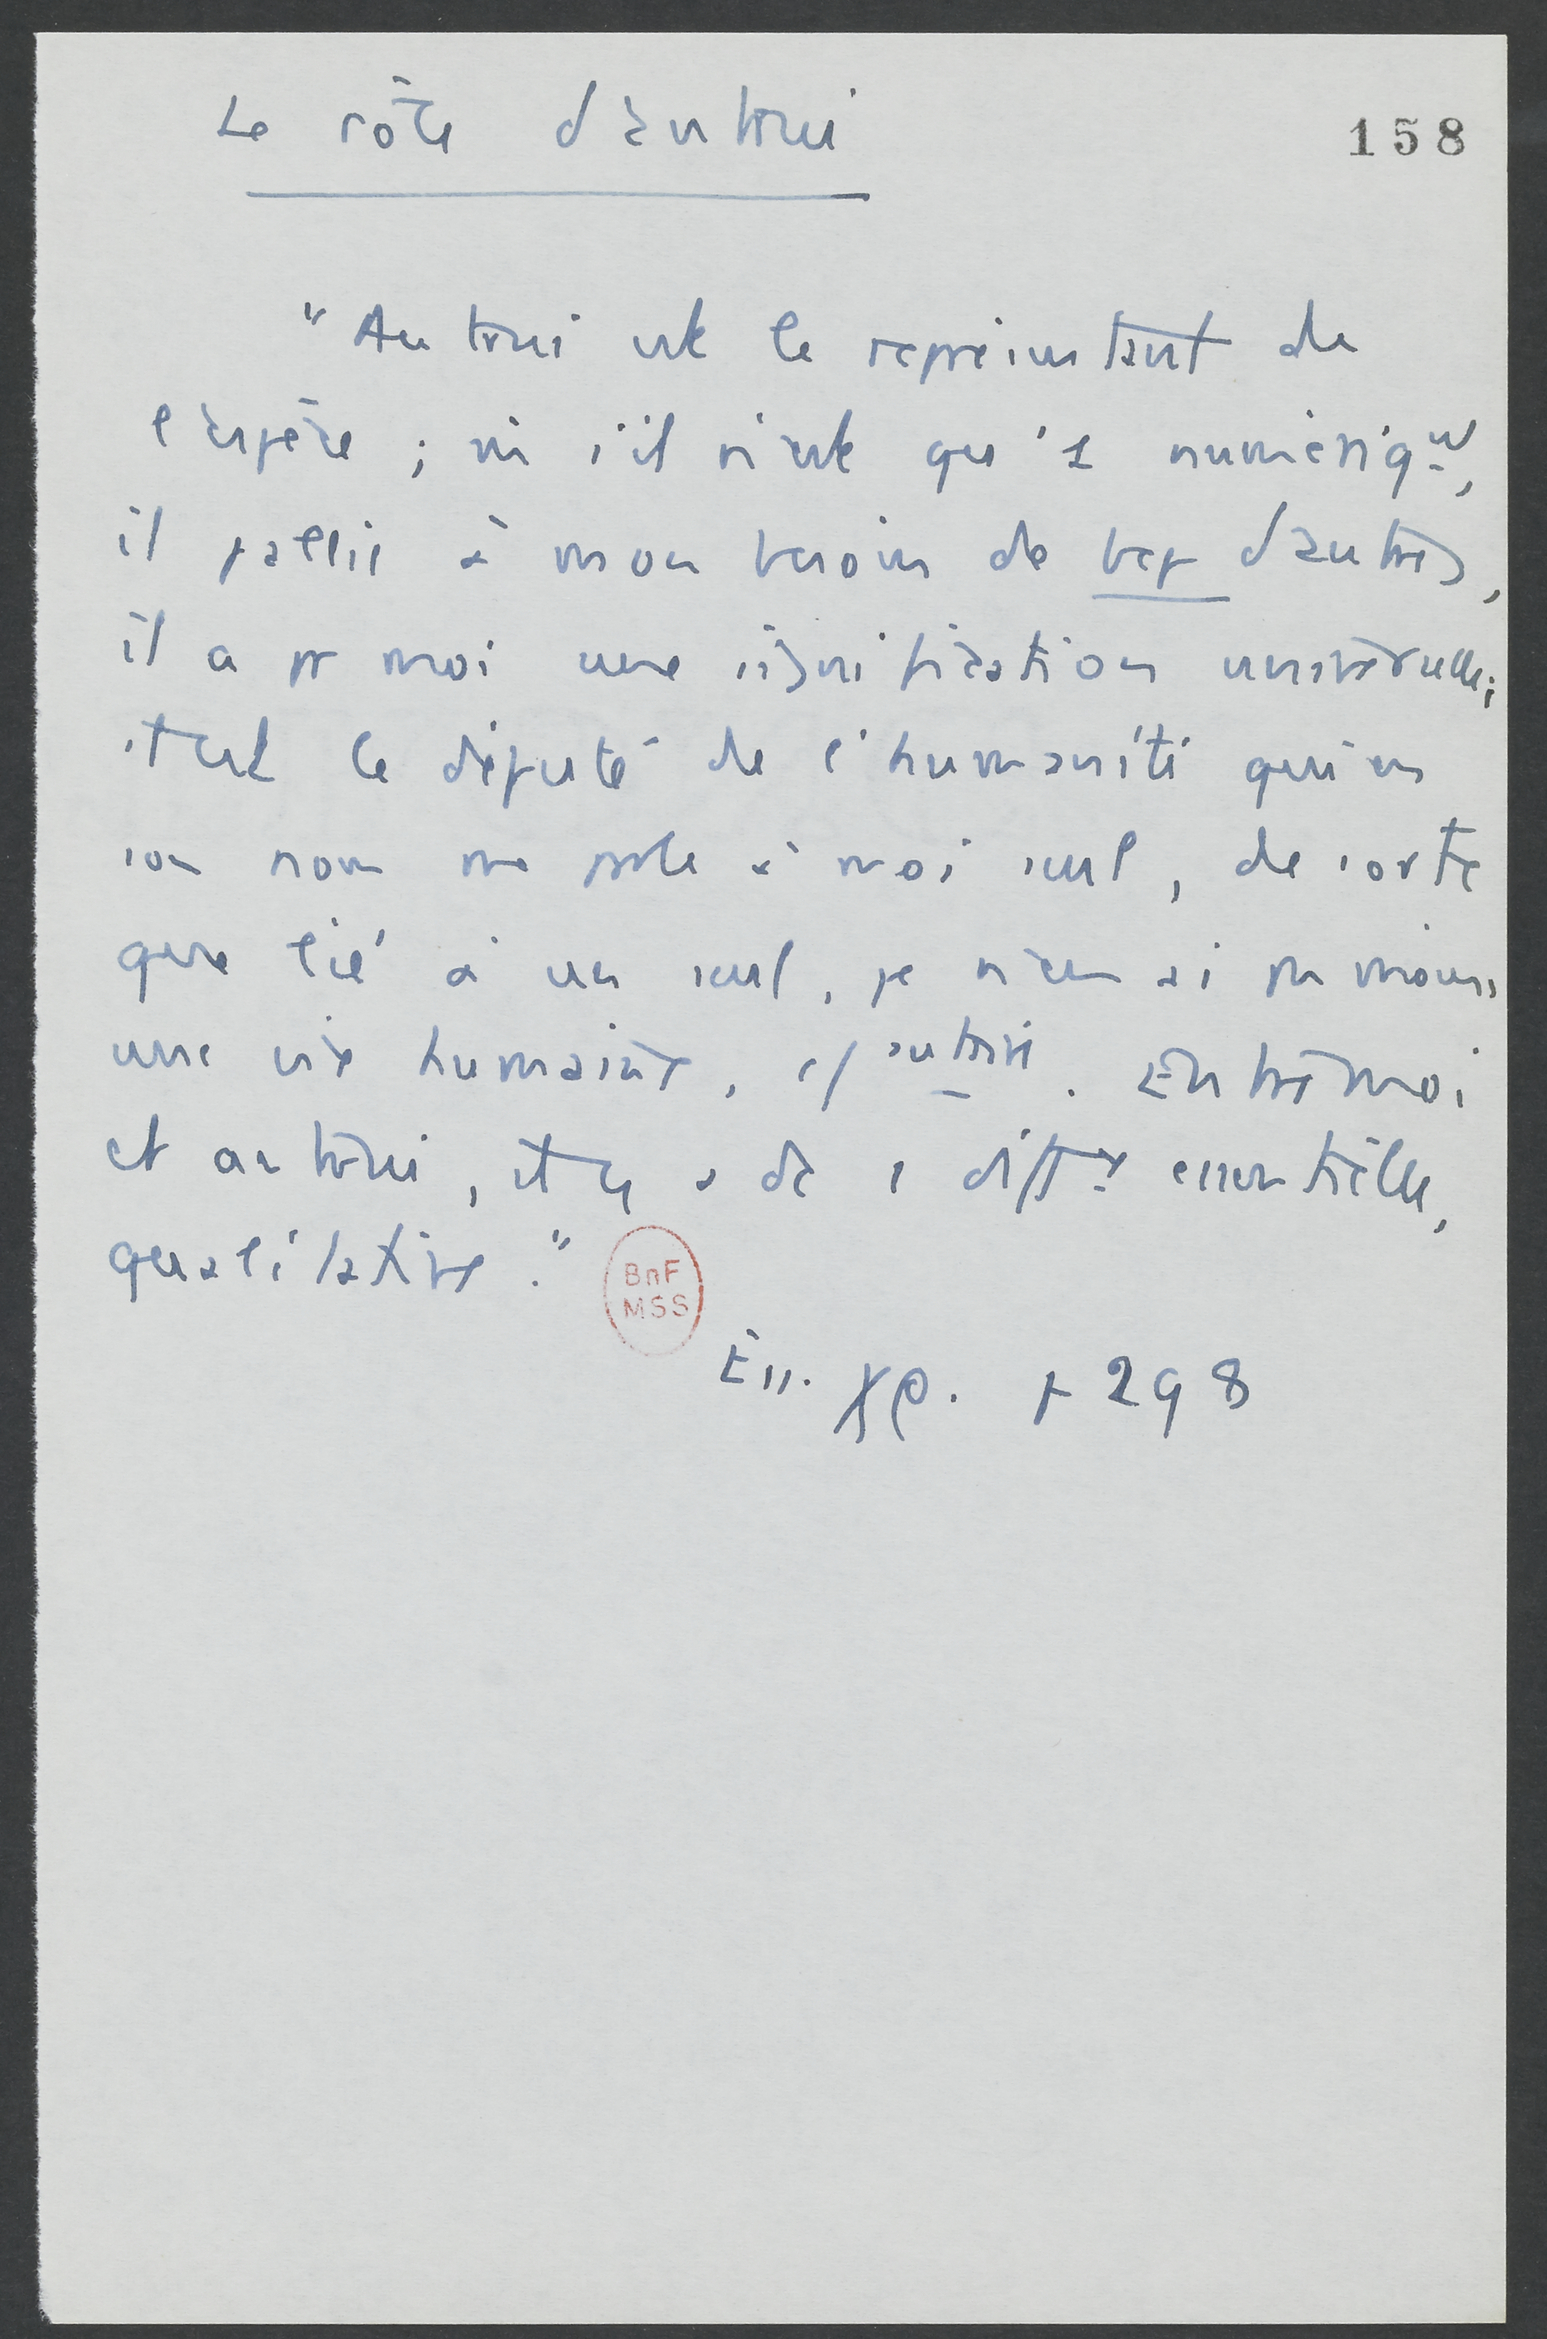 Le rôle d'autrui
158
"Autrui est le représentant de
l'espèce ; ni s'il n'est qu'1 numériqt,
il pallie à mon besoin de bcp d'autres,
il a pr moi une signification universelle ;
il est le député de l'humanité qui en
son nom me parle à moi seul, de sorte
que lié à un seul, je n'en ai pas moins
une vie humaine, cf autrui. Entre moi
et autrui, il y a dc 1 diffce essentielle,
qualitative."
BnF
MSS
Ess. p 298